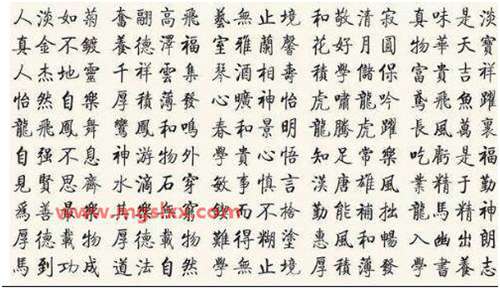 人淡如菊 奮翮高飛 藝無止境 和敬清寂 真味是淡
真金不鍍 養德澤福 室雅蘭馨 花好月圓 物華天寶
人杰地靈 千祥雲集 琴酒相壽 學儲 富貴吉祥
怡然自樂 厚積薄發 心曠神怡 虎嘯龍吟 鳶飛魚躍
龍飛鳳舞 鸞鳳和鳴 春和景明 龍騰虎躍 長風萬裏
自强不息 神游物外 學貴心悟 知足常樂 吃虧是福
見賢思齊 水滴石穿 敏事慎言 漢唐雄風 業精于勤
爲善最樂 其 而不 勤能補拙 龍馬精神
厚德載物 厚德載物 難得糊塗 惠風和暢
馬到功成 道法自然 學無止境 厚積薄發 學書養志